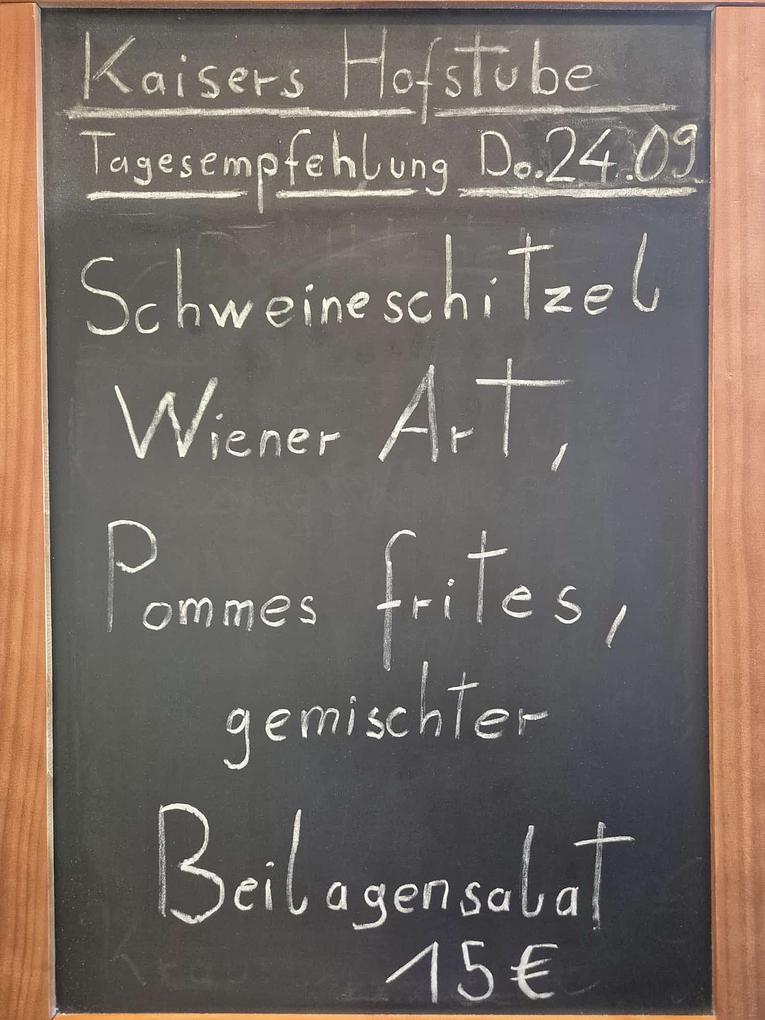 Kaisers Hofstube
Tagesempfehlung Do. 24.09
Schweineschitzel
Wiener Art,
Pommes frites,
gemischter
Beilagensalat
15€